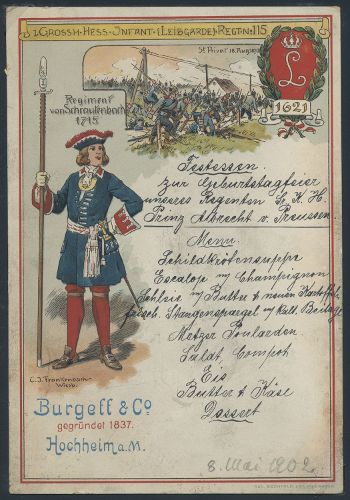 1. GROSSH. HESS. INFANT. (LEIBGARDE) REGT. No 115
St Privat 18. Aug. 1870
L
1621
Regiment
von Schrautenbach
1715
Festessen
zur Geburtstagfeier
unseres Regenten Sr. K. H.
Prinz Albrecht v. Preussen
Menu.
Schildkrötensuppe
Escalop m/ Champignon
Schleie m/ Butter & neuen Kartoffeln
frisch. Stangenspargel m/ kalt. Beilage
Metzer Poularden
Salat, Compot
Eis
Butter & Käse
Dessert
C. J. Frankenbach
Wiesb.
Burgeff & Co
gegründet 1837.
Hochheim a. M.
8. Mai 1902